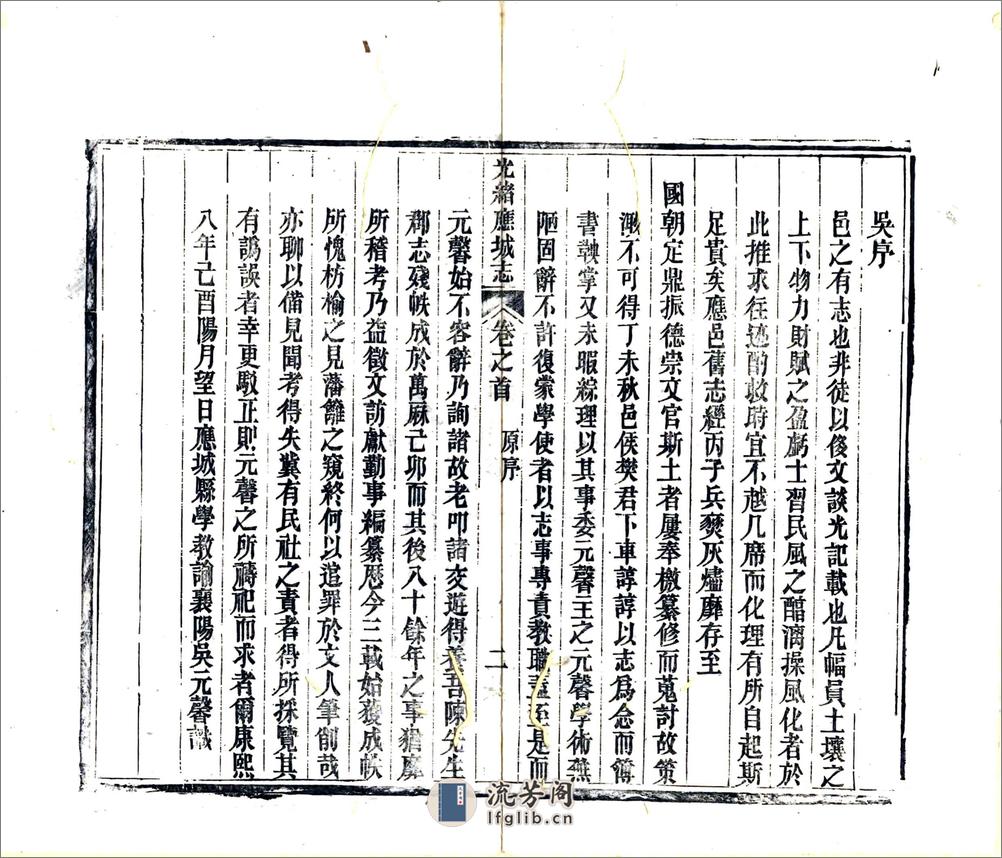 吳序
邑之有志也非徒以侈文談光記載也凡幅員土壤之
上下物力財賦之盈虧士習民風之醕漓操風化者於
此推求往迹酌收時宜不越几席而化理有所自起斯
足貴矣應邑舊志經丙子兵燹灰燼靡存至
國朝定鼎振德崇文官斯土者屢奉檄纂修而蒐討故策
渺不可得丁未秋邑侯樊君下車諄諄以志為念而簿
書鞅掌又未暇綜理以其事委元馨主之元馨學術蕪
陋固辭不許復蒙學使者以志事專責教職蓋至是而
光緒應城志 卷之首 原序 二
元馨始不容辭乃詢諸故老叩諸交遊得養吾陳先生
郡志殘帙成於萬厤己卯而其後八十餘年之事猶靡
所稽考乃益徵文訪獻勤事編纂厯今三載始獲成帙
所愧枋榆之見藩籬之窺終何以逭罪於文人筆削哉
亦聊以備見聞考得失冀有民社之責者得所採覽其
有譌誤者幸更駁正則元馨之所禱祀而求者爾康熙
八年己酉陽月望日應城縣學教諭襄陽吳元馨識
流芳阁
lfglib.cn